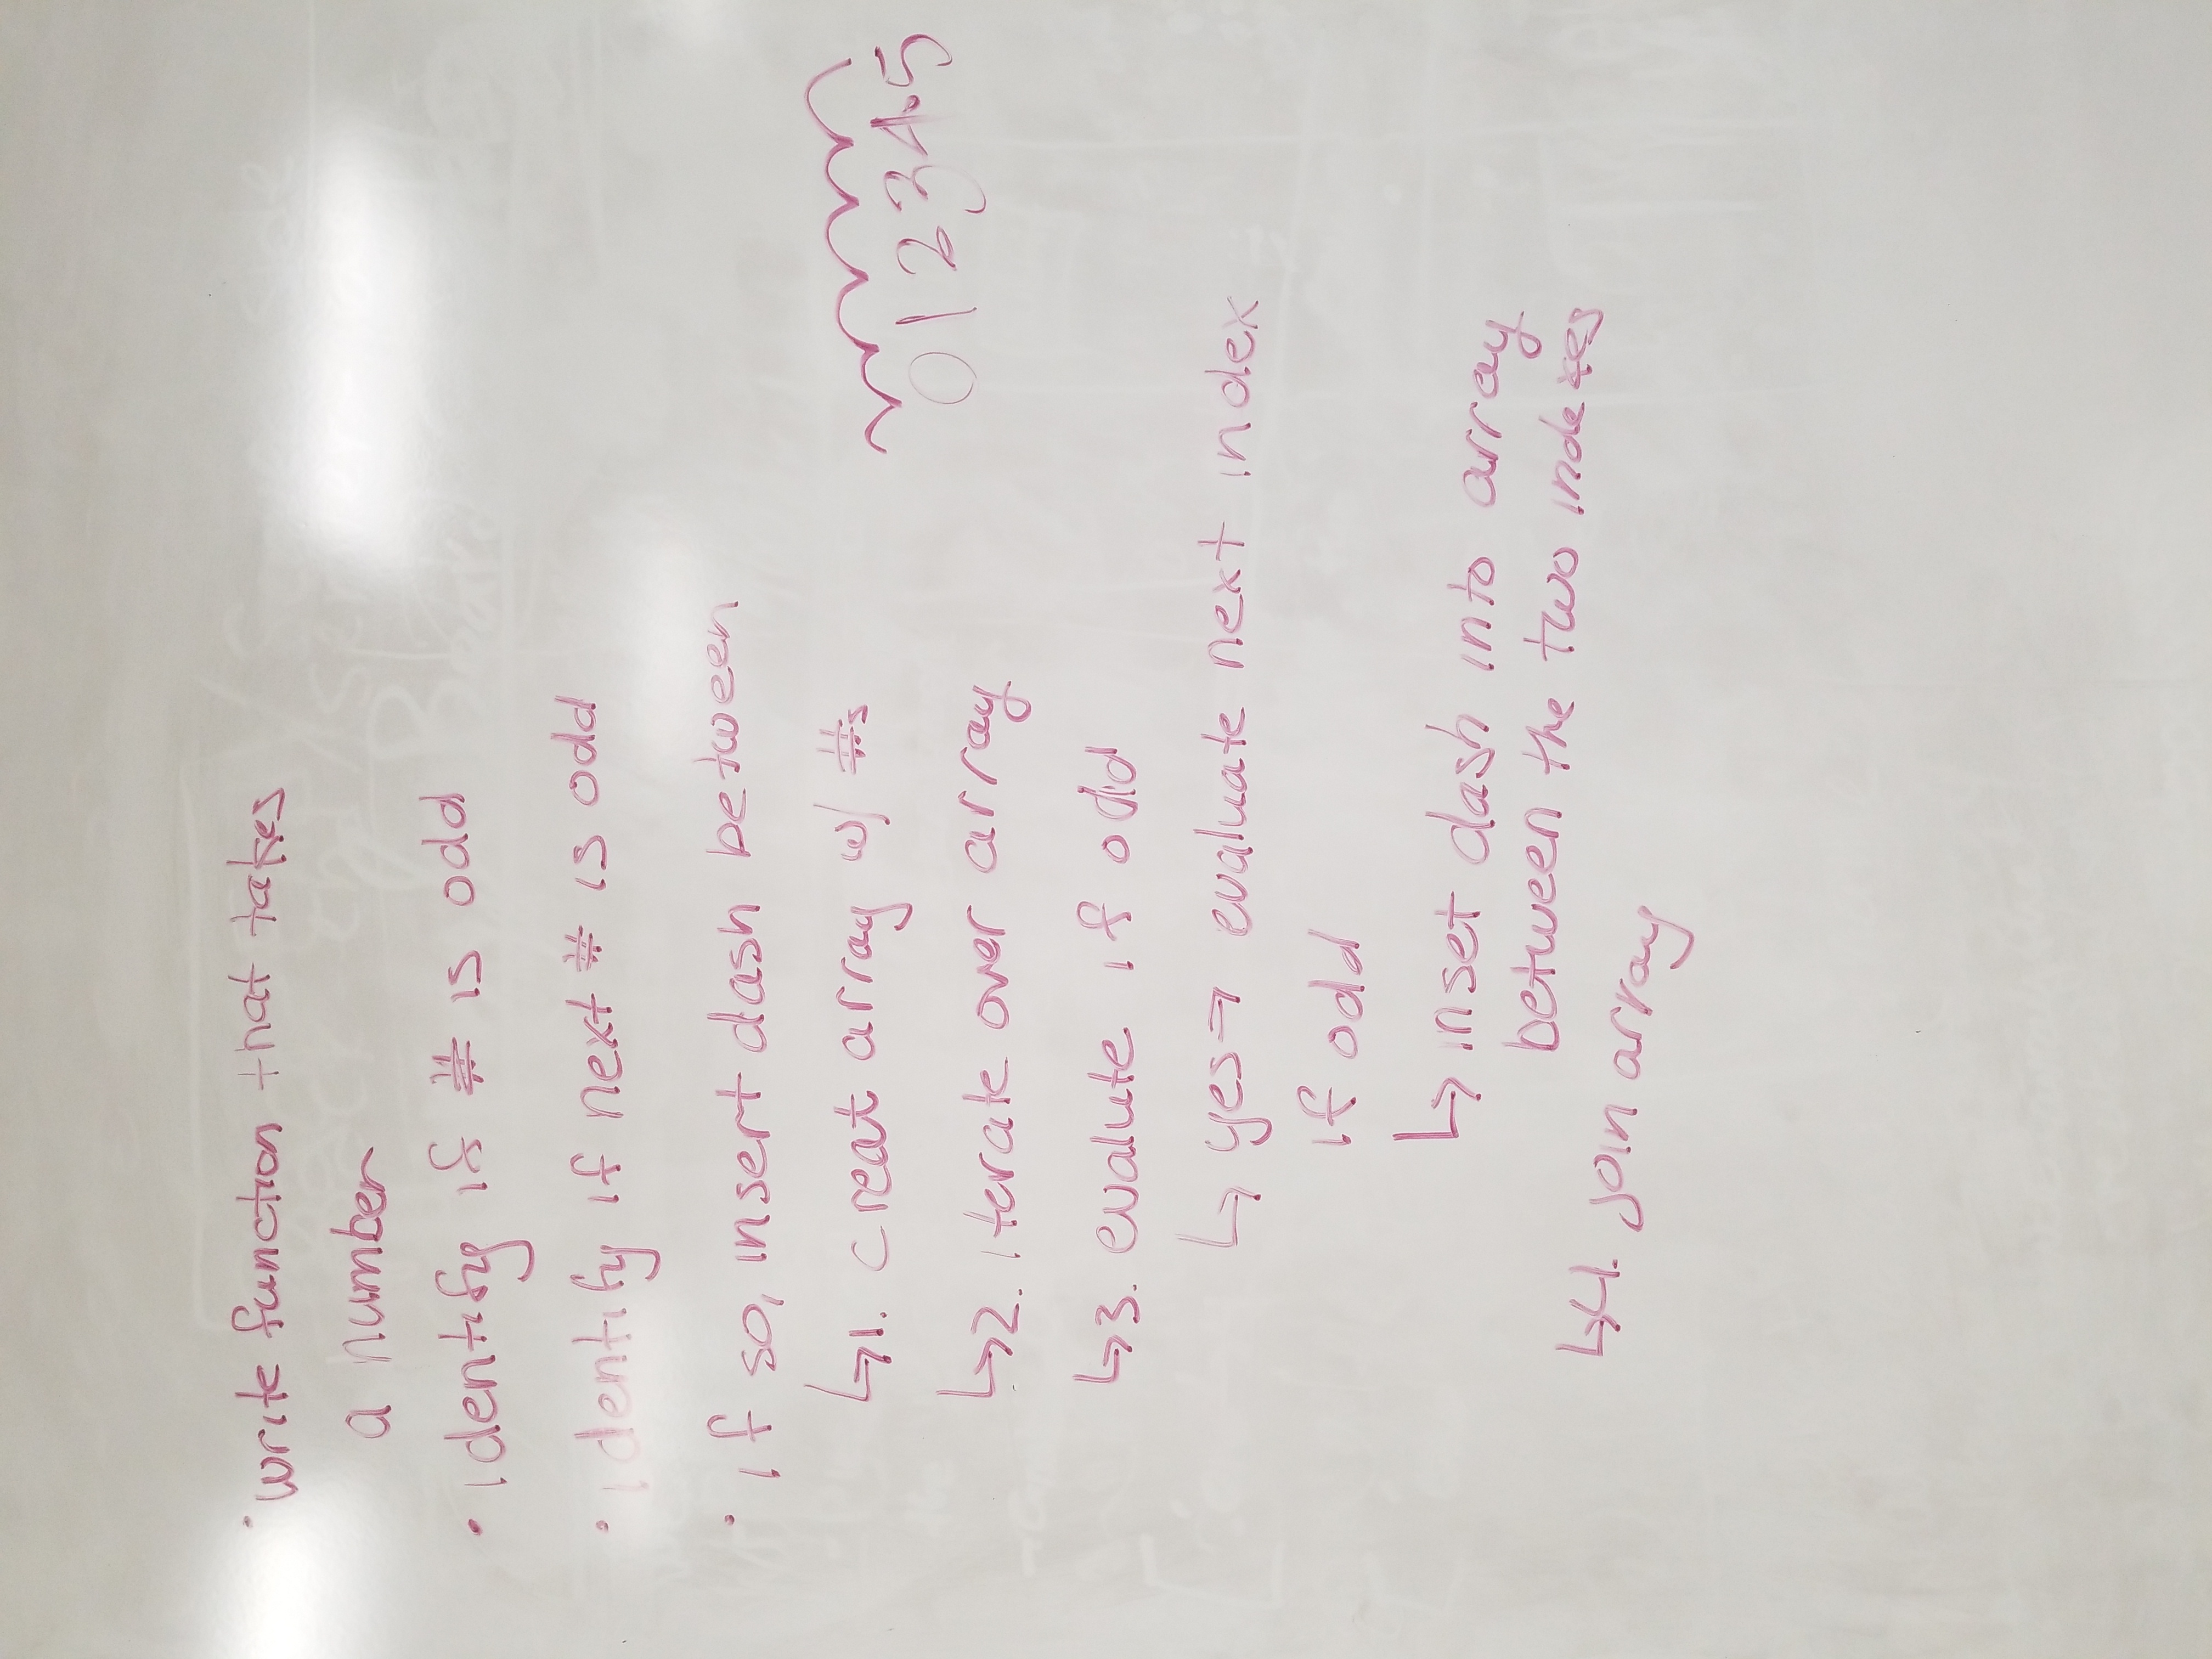 • write function that takes
a number
• identify if # is odd
• identify if next # is odd
• if so, insert dash between
↳1. creat array w/ #s
0 1 2 3 4 5
↳2. iterate over array
↳3. evalute if odd
↳ yes → evaluate next index
if odd
↳ inset dash into array
between the two indexes
↳4. join array